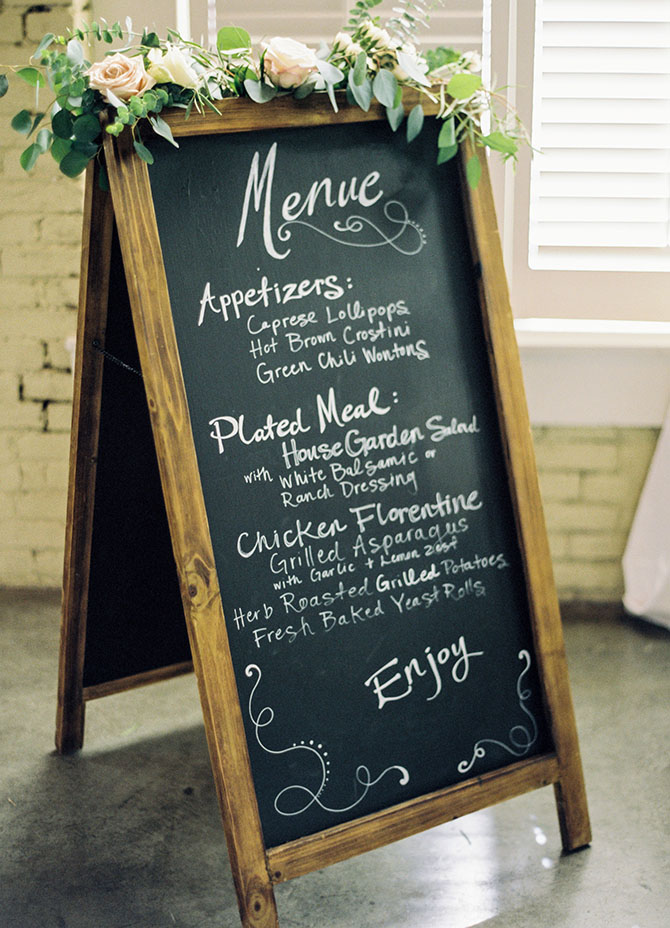 Menue
Appetizers:
Caprese Lollipops
Hot Brown Crostini
Green Chili Wontons
Plated Meal:
House Garden Salad
with White Balsamic or
Ranch Dressing
Chicken Florentine
Grilled Asparagus
with Garlic + Lemon Zest
Herb Roasted Grilled Potatoes
Fresh Baked Yeast Rolls
Enjoy